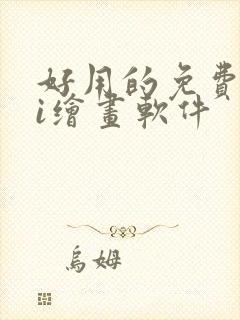 好用的免費
i繪畫軟件
烏姆